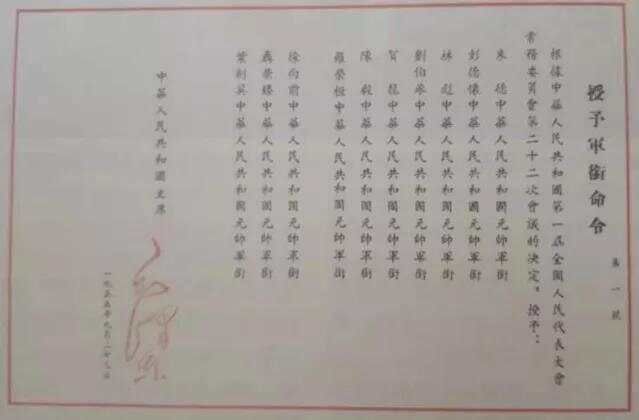 授予軍銜命令
第一號
根據中華人民共和國第一屆全國人民代表大會
常務委員會第二十二次會議的決定。授予：
朱　德中華人民共和國元帥軍銜
彭德懷中華人民共和國元帥軍銜
林　彪中華人民共和國元帥軍銜
劉伯承中華人民共和國元帥軍銜
賀　龍中華人民共和國元帥軍銜
陳　毅中華人民共和國元帥軍銜
羅榮桓中華人民共和國元帥軍銜
徐向前中華人民共和國元帥軍銜
聶榮臻中華人民共和國元帥軍銜
葉劍英中華人民共和國元帥軍銜
中華人民共和國主席
毛澤東
一九五五年九月二十三日